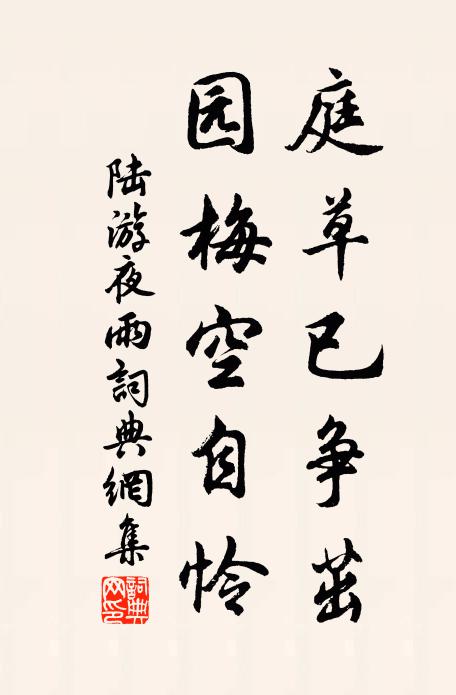 庭草已争茁
园梅空自怜
陆游夜雨詞典網集
詞典网印